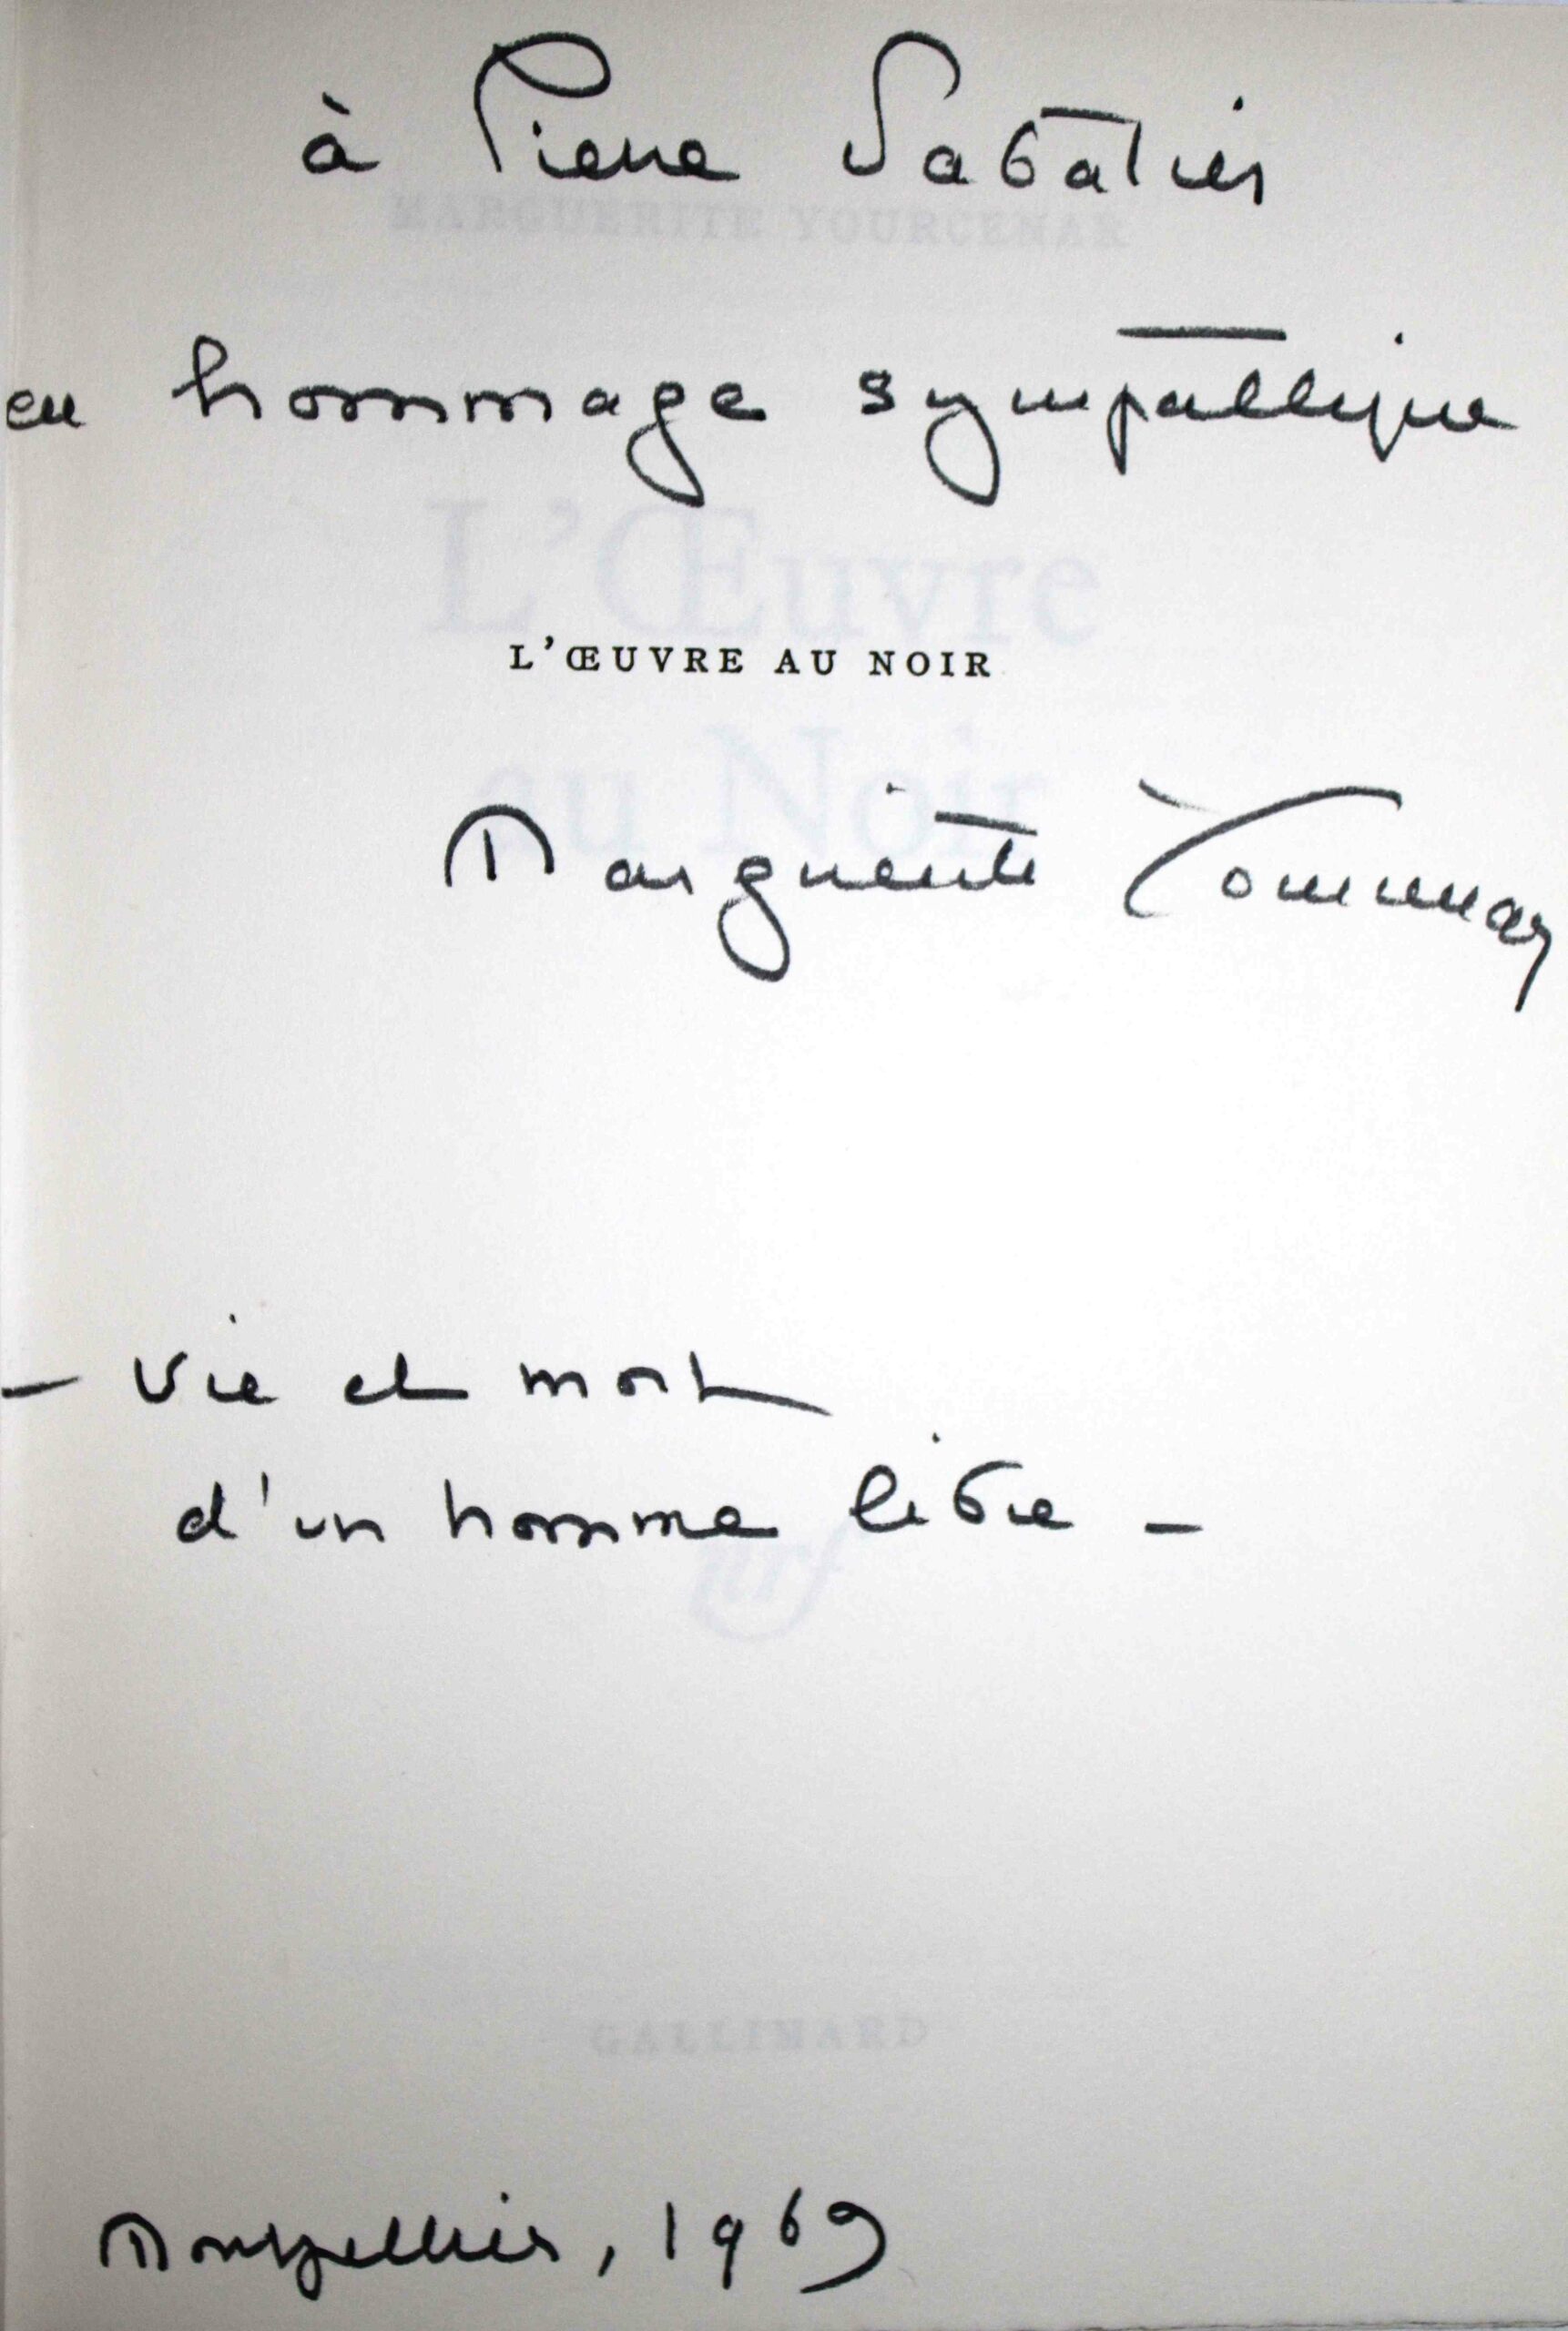 à Pierre Sabatier
MARGUERITE YOURCENAR
en hommage sympathique
L'Œuvre
L'ŒUVRE AU NOIR
au Noir
Marguerite Yourcenar
- Vie et mort
d'un homme libre -
nrf
GALLIMARD
Montpellier, 1969